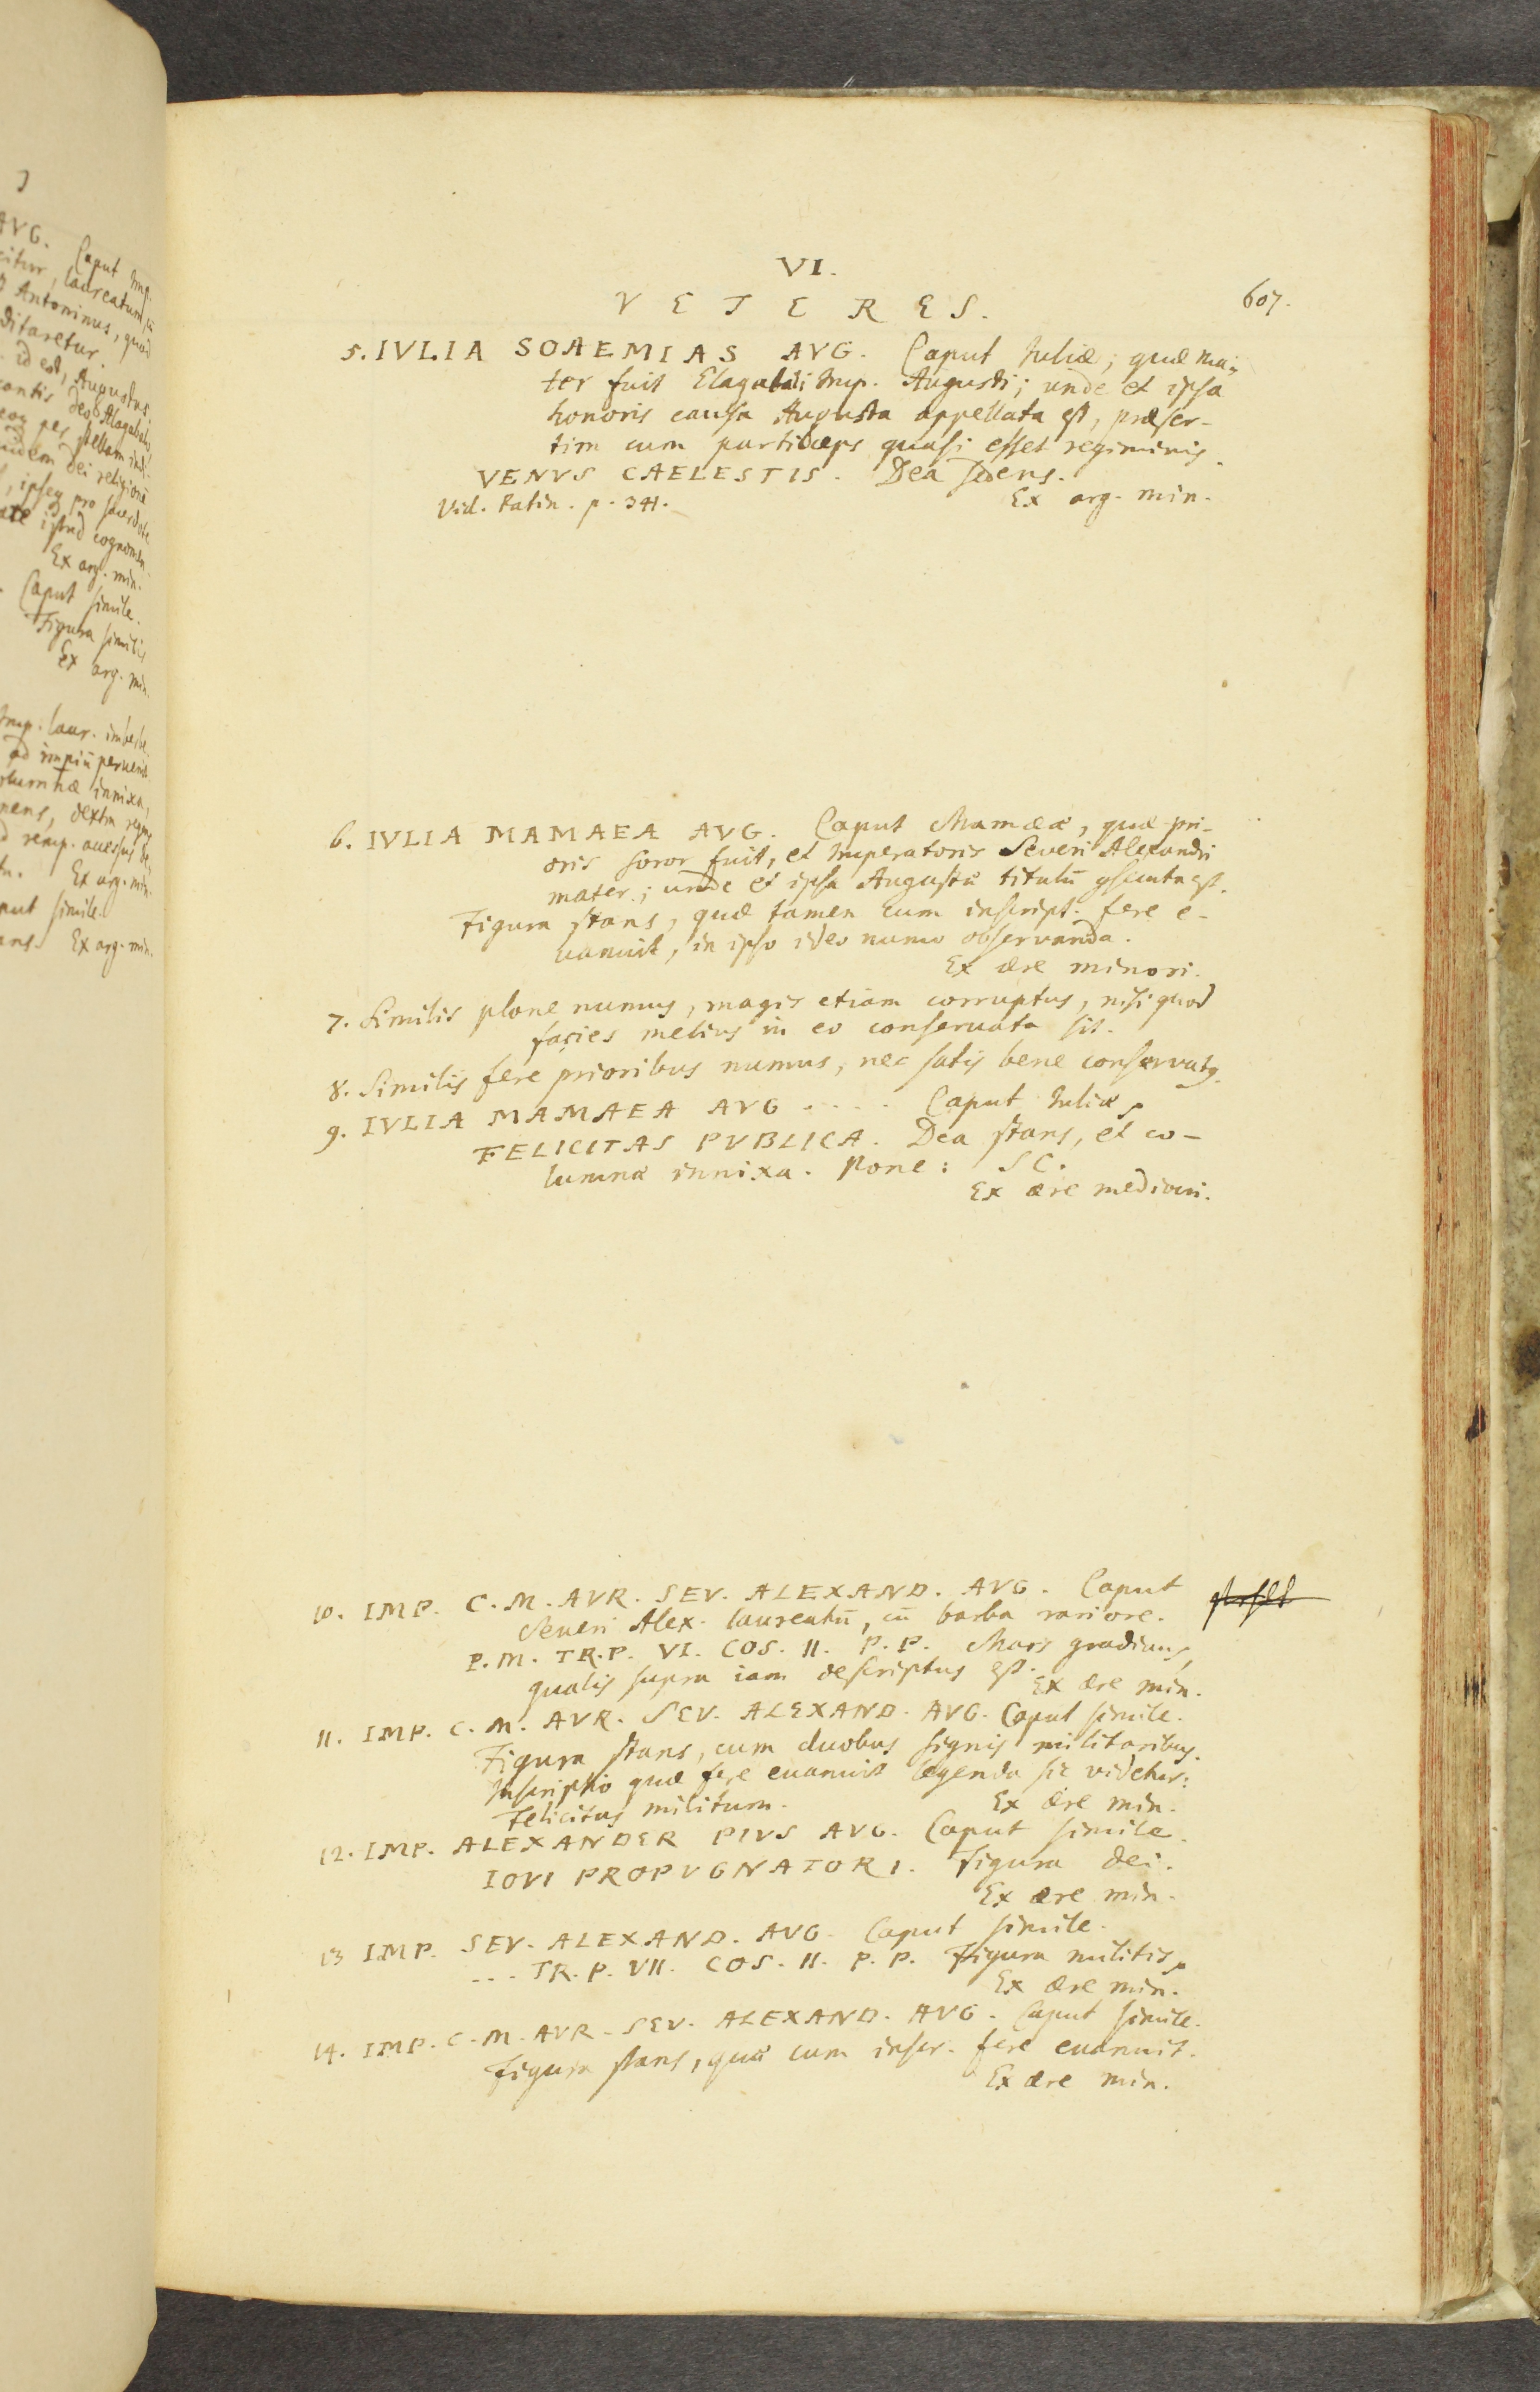 VI.
VETERES.
607.
5. IVLIA SOAEMIAS AVG. Caput Iuliæ; quæ ma-
ter fuit Elagabali Imp. Augusti; unde et ipsa
honoris causa Augusta appellata est, præser-
tim cum particeps quasi esset regiminis.
VENVS CAELESTIS. Dea sedens.
Vid. Patin. p. 341.
Ex arg. min.
6. IVLIA MAMAEA AVG. Caput Mamææ, quæ pri-
oris soror fuit, et Imperatoris Severi Alexandri
mater; unde et ipsa Augustæ titulū est.
Figura stans, quæ tamen cum inscript. fere e-
uanuit, in ipso ideo numo observanda.
Ex ære minori.
7. Similis plane numus, magis etiam corruptus, nisi quod
facies melius in eo conseruata sit.
8. Similis fere prioribus numus, nec satis bene conservatꝰ.
9. IVLIA MAMAEA AVG .... Caput Iuliæ.
FELICITAS PVBLICA. Dea stans, et co-
lumnæ innixa. Pone: SC.
Ex ære mediocri.
10. IMP. C. M. AVR. SEV. ALEXAND. AVG. Caput
Seueri Alex. laureatū, cū barba rariore.
P. M. TR. P. VI. COS. II. P. P. Mars gradiens,
qualis supra iam descriptus est.
Ex ære min.
11. IMP. C. M. AVR. SEV. ALEXAND. AVG. Caput simile.
Figura stans, cum duobus signis militaribus.
Inscriptio quæ fere euanuit legenda sic videtur:
Felicitas militum.
Ex ære min.
12. IMP. ALEXANDER PIVS AVG. Caput simile.
IOVI PROPVGNATORI. Figura dei.
Ex ære min.
13 IMP. SEV. ALEXAND. AVG. Caput simile.
... TR. P. VII. COS. II. P. P. Figura militis.
Ex ære min.
14. IMP. C. M. AVR. SEV. ALEXAND. AVG. Caput simile.
Figura stans, quæ cum inscr. fere euanuit.
Ex ære min.